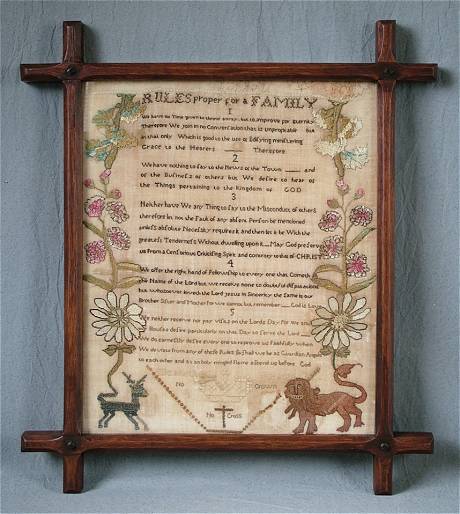 RULES proper for a FAMILY
1
We have no Time given to throw away, but to improve for Eternity
Therefore We Join in no Conversation that is unprofitable but
in that only Which is good to the use of Edifying ministering
Grace to the Hearers Therefore
2
We have nothing to say to the News of the Town and
of the Businefs of others but We defire to hear of
the Things pertaining to the Kingdom of GOD
3
Neither have We any Thing to say to the Misconduct of others
therefore let not the Fault of any absent Person be mentioned
unlefs absolute Necefsity requires it and then let it be With the
greatest Tendernefs Without dwelling upon it May God preserve
us from a Censorious Criticifing Spirit and contrary to this of CHRIST
4
We offer the right hand of Fellowship to every one that Cometh
the Name of the Lord but we receive none to doubtful disputations
but whosoever loveth the Lord Jesus in Sincerity the Same is our
Brother Sister and Mother for we cannot but remember God is Love
5
We neither receive nor pay visits on the Lords Day For we and
House defire particularly on that Day to Serve the Lord
We do earnestly defire every one to reprove us faithfully when
We deviate from any of these Rules so shall we be as Guardian Angels
to each other and as an holy mingled flame ascend up before God
No Crown
No Cross